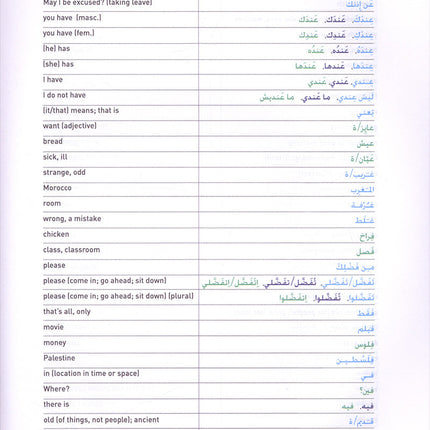 May I be excused? (taking leave) عَن إذنَك
you have (masc.) عِندَكَ، عَندَك، عَندَك
you have (fem.) عِندَكِ، عَندِك، عَندِك
(he) has عِندَهُ، عَندُه، عَندُه
(she) has عِندَها، عَندها، عَندَها
I have عِندي، عَندي، عَندي
I do not have لَيسَ عِندي، ما عَندي، ما عَنديش
(it/that) means; that is يَعني
want (adjective) عايِز/ة
bread عيش
sick, ill عَيّان/ة
strange, odd غَريب/ة
Morocco المَغرِب
room غُرفة
wrong, a mistake غَلَط
chicken فِراخ
class, classroom فَصل
please مِن فَضلِكَ
please (come in; go ahead; sit down) تَفَضَّل/تَفَضَّلي، تْفَضَّل/تفَضَّلي، اِتْفَضَّل/اتفَضَّلي
please (come in; go ahead; sit down) (plural) تَفَضَّلوا، تْفَضَّلوا، اِتفَضَّلوا
that's all, only فَقَط
movie فيلم
money فِلوس
Palestine فِلِسْطين
in (location in time or space) في
Where? فين؟
there is فيه، فيه
old (of things, not people); ancient قَديم/ة